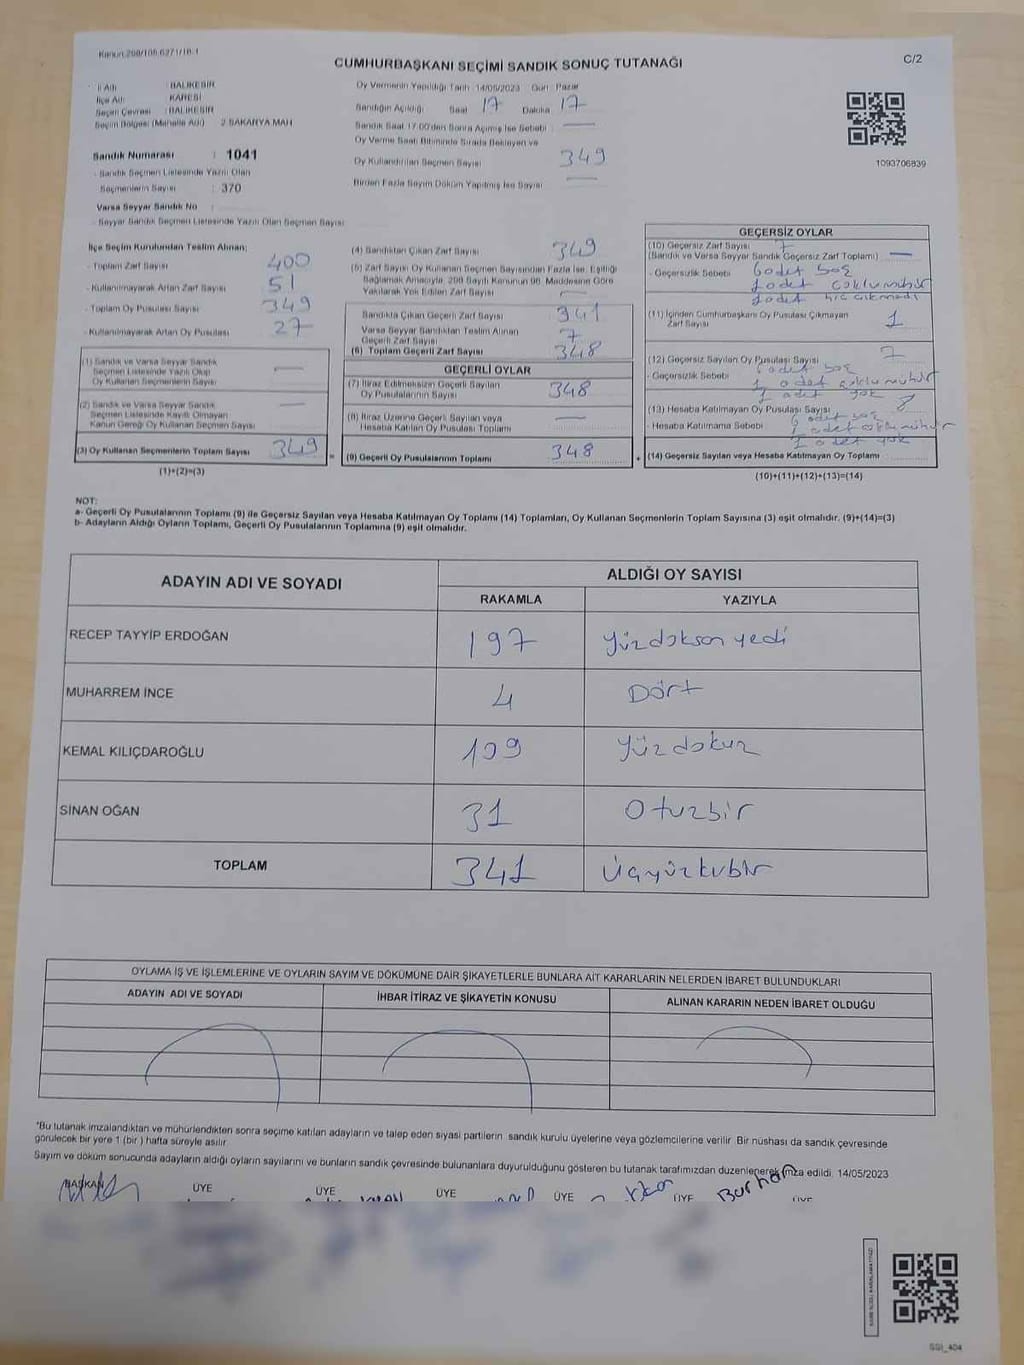 Kanun:298/105,6271/18-1
C/2
CUMHURBAŞKANI SEÇİMİ SANDIK SONUÇ TUTANAĞI
İl Adı : BALIKESİR
İlçe Adı : KARESİ
Seçim Çevresi : BALIKESİR
Seçim Bölgesi (Mahalle Adı) 2 SAKARYA MAH
Sandık Numarası : 1041
- Sandık Seçmen Listesinde Yazılı Olan
Seçmenlerin Sayısı : 370
Varsa Seyyar Sandık No
- Seyyar Sandık Seçmen Listesinde Yazılı Olan Seçmen Sayısı
Oy Vermenin Yapıldığı Tarih 14/05/2023 Gün Pazar
Sandığın Açıldığı Saat 17 Dakika 17
Sandık Saat 17:00'den Sonra Açılmış İse Sebebi : —
Oy Verme Saati Bitiminde Sırada Bekleyen ve
Oy Kullandırılan Seçmen Sayısı 349
Birden Fazla Sayım Döküm Yapılmış İse Sayısı —
1093706839
İlçe Seçim Kurulundan Teslim Alınan;
- Toplam Zarf Sayısı 400
- Kullanılmayarak Artan Zarf Sayısı 51
- Toplam Oy Pusulası Sayısı 349
- Kullanılmayarak Artan Oy Pusulası 27
(1) Sandık ve Varsa Seyyar Sandık
Seçmen Listesinde Yazılı Olup
Oy Kullanan Seçmenlerin Sayısı —
(2) Sandık ve Varsa Seyyar Sandık
Seçmen Listesinde Kayıtlı Olmayan
Kanun Gereği Oy Kullanan Seçmen Sayısı —
(3) Oy Kullanan Seçmenlerin Toplam Sayısı 349
(1)+(2)=(3)
(4) Sandıktan Çıkan Zarf Sayısı 349
(5) Zarf Sayısı Oy Kullanan Seçmen Sayısından Fazla İse, Eşitliği
Sağlamak Amacıyla, 298 Sayılı Kanunun 98. Maddesine Göre
Yakılarak Yok Edilen Zarf Sayısı —
Sandıkta Çıkan Geçerli Zarf Sayısı 341
Varsa Seyyar Sandıktan Teslim Alınan
Geçerli Zarf Sayısı 7
(6) Toplam Geçerli Zarf Sayısı 348
GEÇERLİ OYLAR
(7) İtiraz Edilmeksizin Geçerli Sayılan
Oy Pusulalarının Sayısı 348
(8) İtiraz Üzerine Geçerli Sayılan veya
Hesaba Katılan Oy Pusulası Toplamı —
(9) Geçerli Oy Pusulalarının Toplamı 348
GEÇERSİZ OYLAR
(10) Geçersiz Zarf Sayısı 7
(Sandık ve Varsa Seyyar Sandık Geçersiz Zarf Toplamı) —
- Geçersizlik Sebebi 6 adet boş
1 adet çoklu mühür
1 adet hiç çıkmadı
(11) İçinden Cumhurbaşkanı Oy Pusulası Çıkmayan
Zarf Sayısı 1
(12) Geçersiz Sayılan Oy Pusulası Sayısı 7
- Geçersizlik Sebebi 6 adet boş
1 adet çoklu mühür
1 adet yok
(13) Hesaba Katılmayan Oy Pusulası Sayısı 8
- Hesaba Katılmama Sebebi 6 adet boş
1 adet çoklu mühür
1 adet yok
(14) Geçersiz Sayılan veya Hesaba Katılmayan Oy Toplamı
(10)+(11)+(12)+(13)=(14)
NOT:
a- Geçerli Oy Pusulalarının Toplamı (9) ile Geçersiz Sayılan veya Hesaba Katılmayan Oy Toplamı (14) Toplamları, Oy Kullanan Seçmenlerin Toplam Sayısına (3) eşit olmalıdır. (9)+(14)=(3)
b- Adayların Aldığı Oyların Toplamı, Geçerli Oy Pusulalarının Toplamına (9) eşit olmalıdır.
ADAYIN ADI VE SOYADI ALDIĞI OY SAYISI
RAKAMLA YAZIYLA
RECEP TAYYİP ERDOĞAN 197 Yüzdoksan yedi
MUHARREM İNCE 4 Dört
KEMAL KILIÇDAROĞLU 109 Yüzdokuz
SİNAN OĞAN 31 Otuzbir
TOPLAM 341 Üçyüzkırkbir
OYLAMA İŞ VE İŞLEMLERİNE VE OYLARIN SAYIM VE DÖKÜMÜNE DAİR ŞİKAYETLERLE BUNLARA AİT KARARLARIN NELERDEN İBARET BULUNDUKLARI
ADAYIN ADI VE SOYADI İHBAR İTİRAZ VE ŞİKAYETİN KONUSU ALINAN KARARIN NEDEN İBARET OLDUĞU
*Bu tutanak imzalandıktan ve mühürlendikten sonra seçime katılan adayların ve talep eden siyasi partilerin sandık kurulu üyelerine veya gözlemcilerine verilir. Bir nüshası da sandık çevresinde
görülecek bir yere 1 (bir) hafta süreyle asılır.
Sayım ve döküm sonucunda adayların aldığı oyların sayılarını ve bunların sandık çevresinde bulunanlara duyurulduğunu gösteren bu tutanak tarafımızdan düzenlenerek imza edildi. 14/05/2023
BAŞKAN ÜYE ÜYE ÜYE ÜYE ÜYE Burhan ÜYE